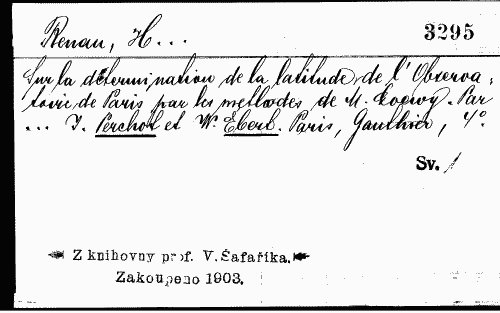 Renan, H... 3295
Sur la détermination de la latitude de l'Observa-
toire de Paris par les méthodes de M. Loewy. Par
... J. Perchot et W. Ebert. Paris, Gauthier, 4°.
Sv. 1
Z knihovny prof. V. Šafaříka.
Zakoupeno 1903.